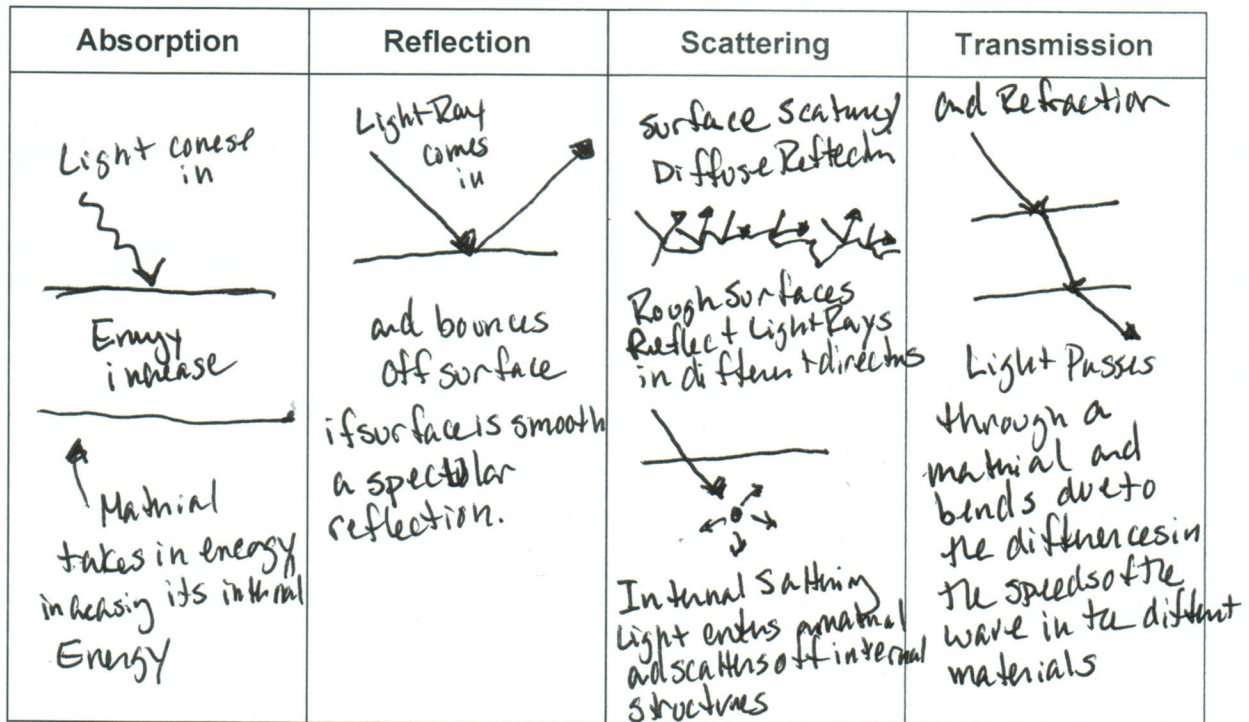 Absorption
Light conese
in
Energy
increase
Material
takes in energy
increasing its internal
Energy
Reflection
Light Ray
comes
in
and bounces
off surface
if surface is smooth
a specular
reflection.
Scattering
surface
Diffuse Reflectn
Rough surfaces
Reflect Light Rays
in different directns
Internal Sattering
Light enters a material
ad scatters off internal
structures
Transmission
and Refraction
Light Passes
through a
material and
bends due to
the differences in
the speeds of the
wave in the different
materials